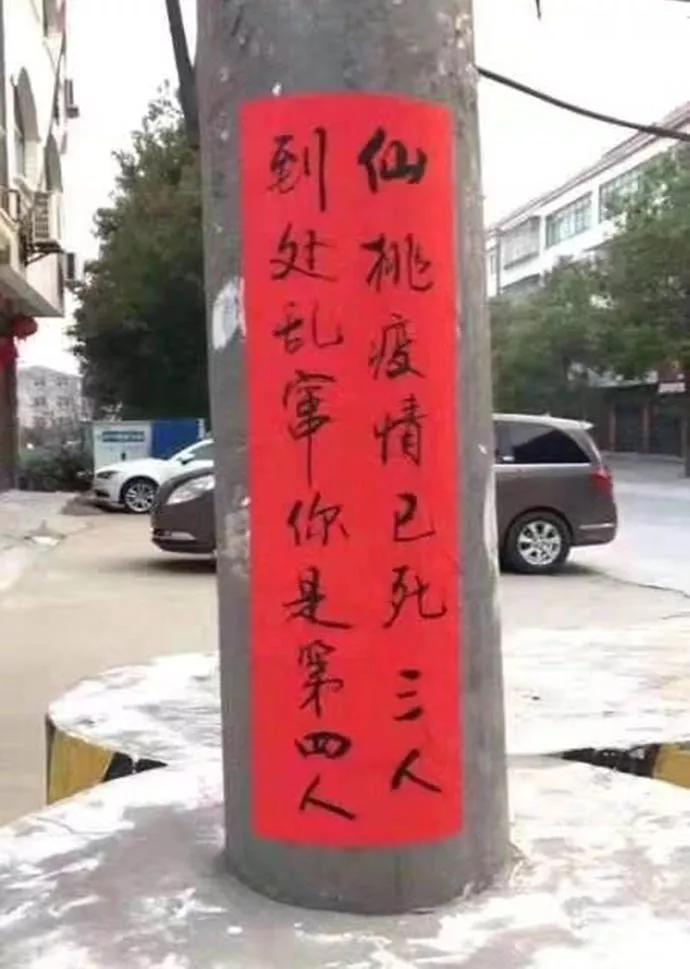 仙桃疫情已死三人
到处乱窜你是第四人